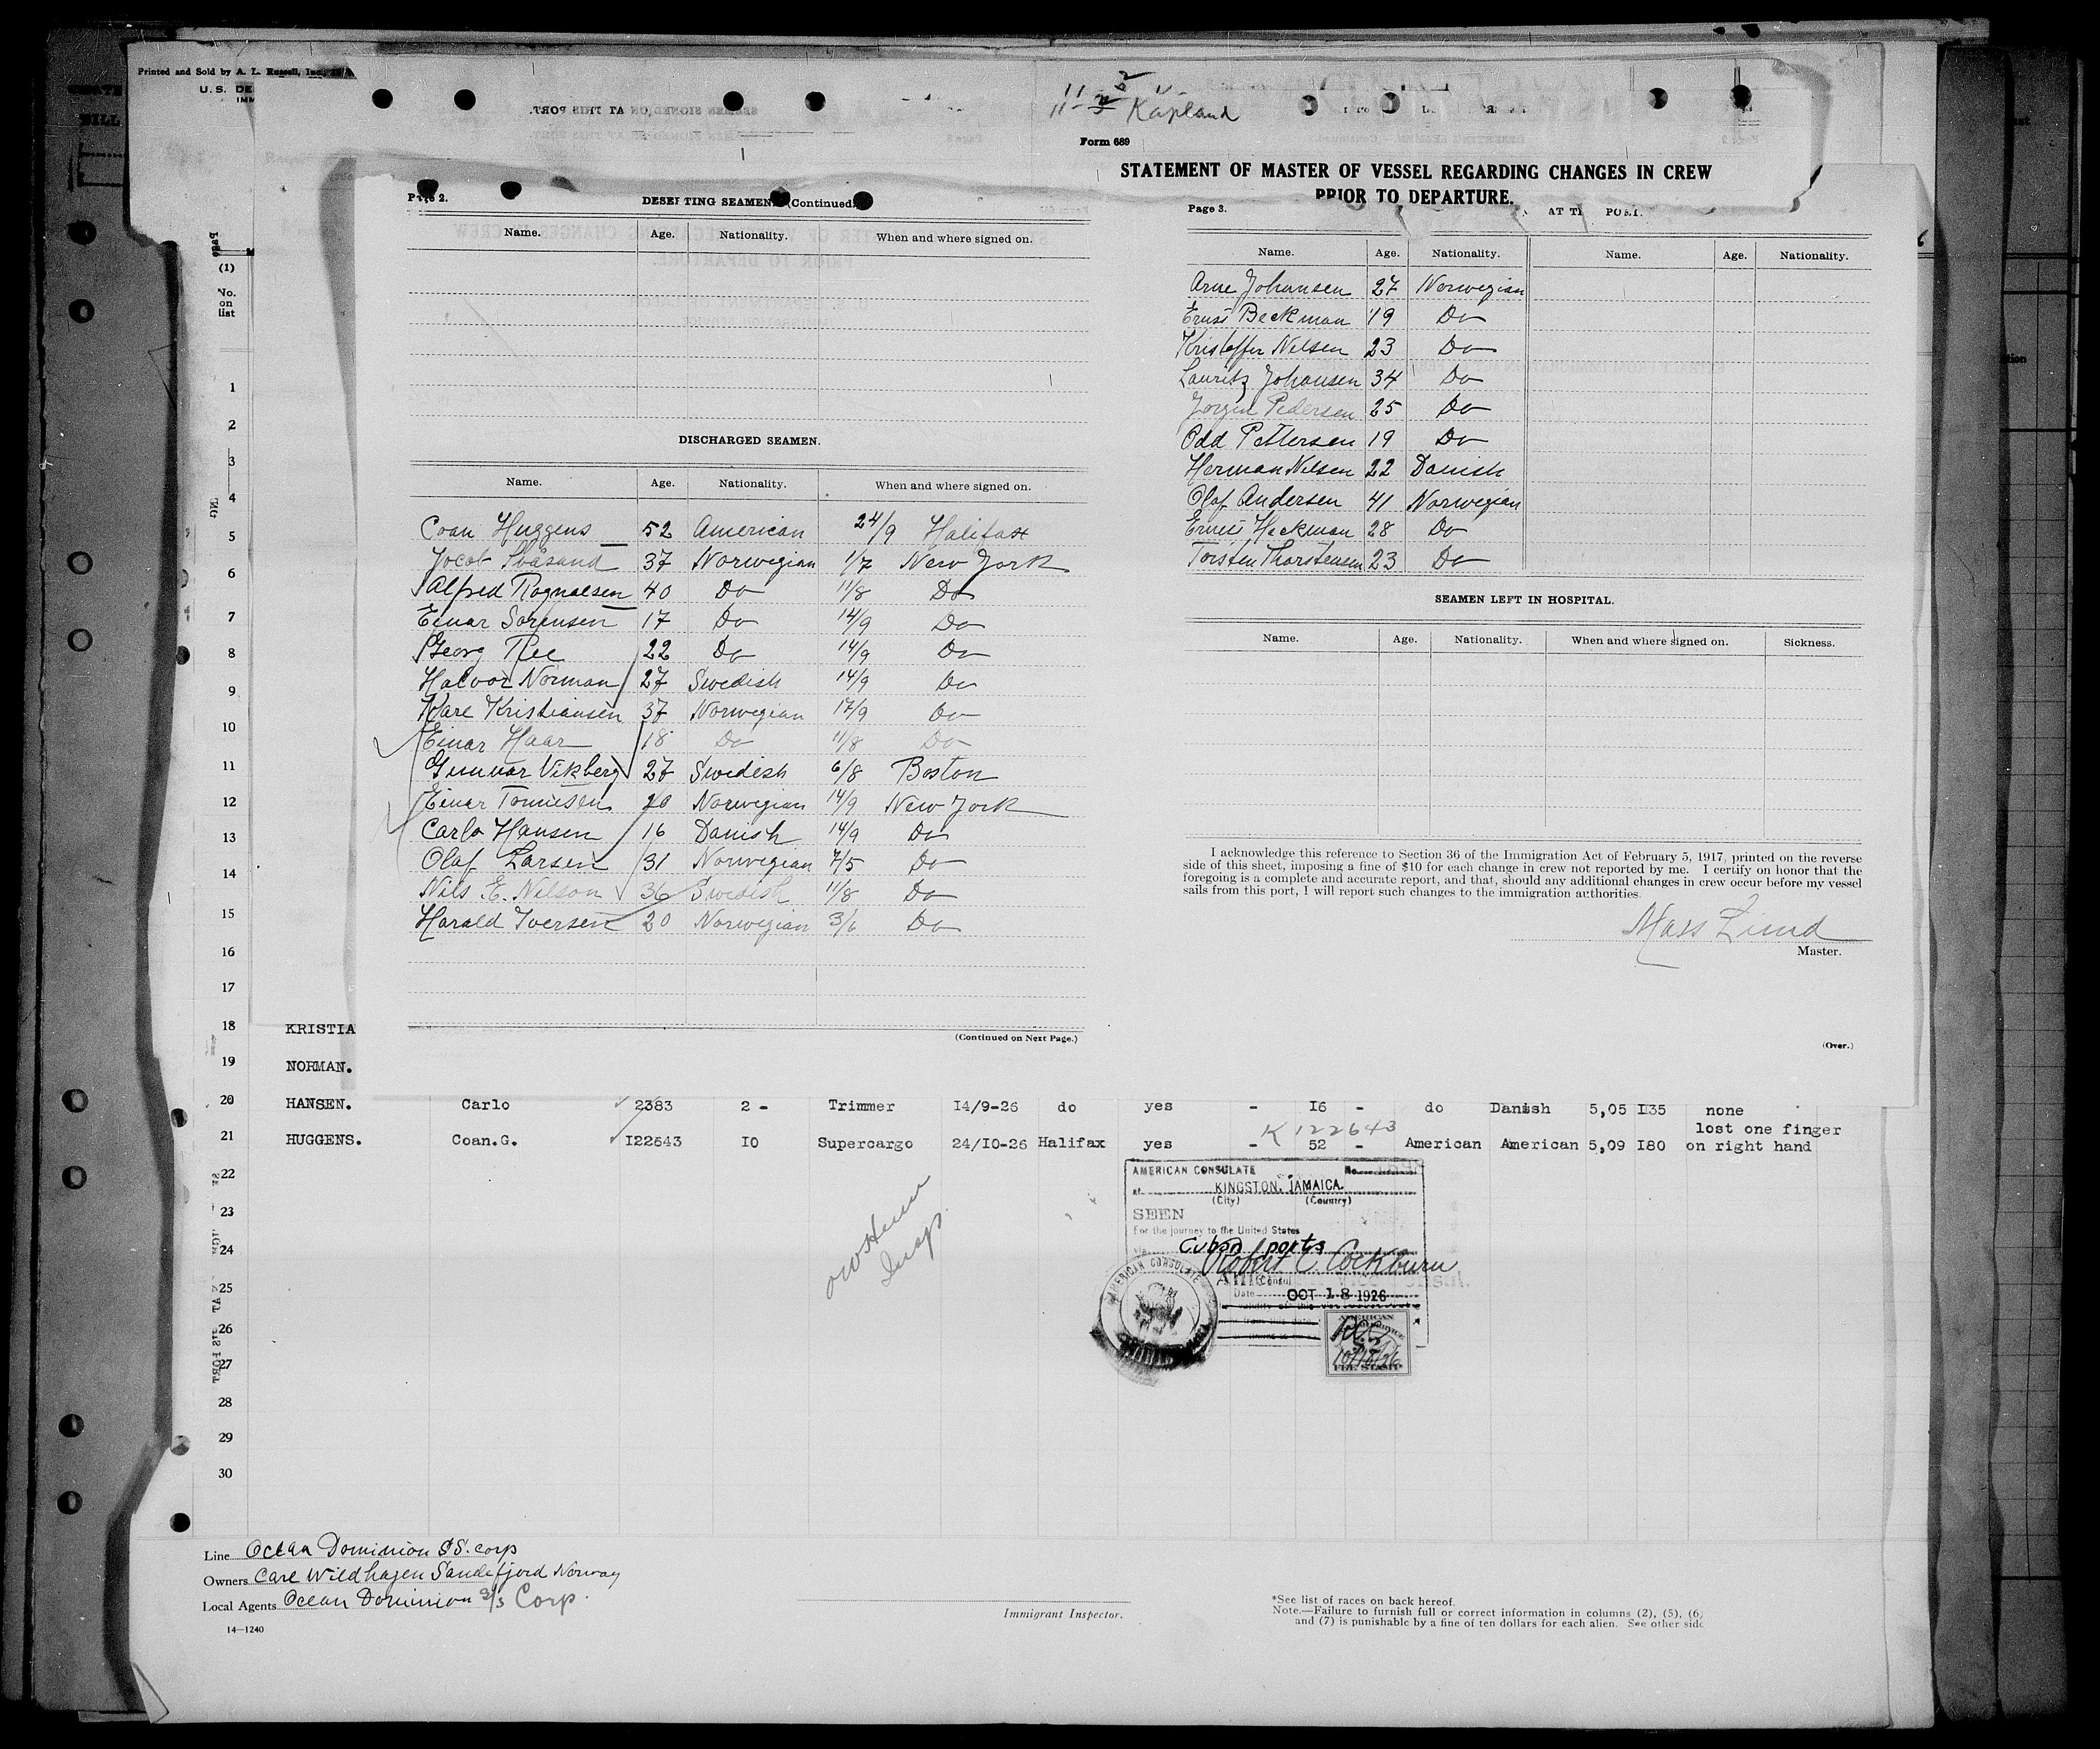 Printed and Sold by A. L. Russell, Inc.
U. S. DE
IMM
Kapland
Form 689
STATEMENT OF MASTER OF VESSEL REGARDING CHANGES IN CREW
PRIOR TO DEPARTURE.
Page 2.
DESERTING SEAMEN. (Continued.)
Name. Age. Nationality. When and where signed on.
DISCHARGED SEAMEN.
Name. Age. Nationality. When and where signed on.
Coan Huggens 52 American 24/9 Halifax
Jocob Svåsand 37 Norwegian 1/7 New York
Alfred Ragnalsen 40 Do 11/8 Do
Einar Sorensen 17 Do 14/9 Do
Georg Ree 22 Do 14/9 Do
Halvor Norman 27 Swedish 14/9 Do
Kare Kristiansen 37 Norwegian 17/9 Do
Einar Haar 18 Do 11/8 Do
Gunnar Vikberg 27 Swedish 6/8 Boston
Einar Tonnesen 20 Norwegian 14/9 New York
Carlo Hansen 16 Danish 14/9 Do
Olaf Larsen 31 Norwegian 7/5 Do
Nils E. Nilson 36 Swedish 11/8 Do
Harald Iversen 20 Norwegian 3/6 Do
(Continued on Next Page.)
Page 3.
Name. Age. Nationality. Name. Age. Nationality.
Arne Johansen 27 Norwegian
Ernst Beckman 19 Do
Kristoffer Nilsen 23 Do
Lauritz Johansen 34 Do
Jorgen Pedersen 25 Do
Odd Pettersen 19 Do
Herman Nilsen 22 Danish
Olaf Andersen 41 Norwegian
Ernest Heckman 28 Do
Torsten Thorstensen 23 Do
SEAMEN LEFT IN HOSPITAL.
Name. Age. Nationality. When and where signed on. Sickness.
I acknowledge this reference to Section 36 of the Immigration Act of February 5, 1917, printed on the reverse
side of this sheet, imposing a fine of $10 for each change in crew not reported by me. I certify on honor that the
foregoing is a complete and accurate report, and that, should any additional changes in crew occur before my vessel
sails from this port, I will report such changes to the immigration authorities.
Master.
(Over.)
(1)
No.
on
list
1
2
3
4
5
6
7
8
9
10
11
12
13
14
15
16
17
18 KRISTIA
19 NORMAN.
20 HANSEN. Carlo 2383 2 - Trimmer I4/9-26 do yes - I6 - do Danish 5,05 I35 none
K 122643
lost one finger
21 HUGGENS. Coan.G. I22643 I0 Supercargo 24/I0-26 Halifax yes - 52 - American American 5,09 I80 on right hand
22
23
24
25
26
27
28
29
30
AMERICAN CONSULATE No.
at KINGSTON, JAMAICA.
(City) (Country)
SEEN
For the journey to the United States
via Cuban ports
Robert C. Cockburn
Consul
Date OCT 18 1926
AMERICAN CONSULATE
AMERICAN
FEE STAMP
Insp.
Line Ocean Dominion SS. corp
Owners Carl Wildhagen Sandefjord Norway
Local Agents Ocean Dominion S/S Corp.
14—1240
Immigrant Inspector.
*See list of races on back hereof.
Note.—Failure to furnish full or correct information in columns (2), (5), (6)
and (7) is punishable by a fine of ten dollars for each alien. See other side